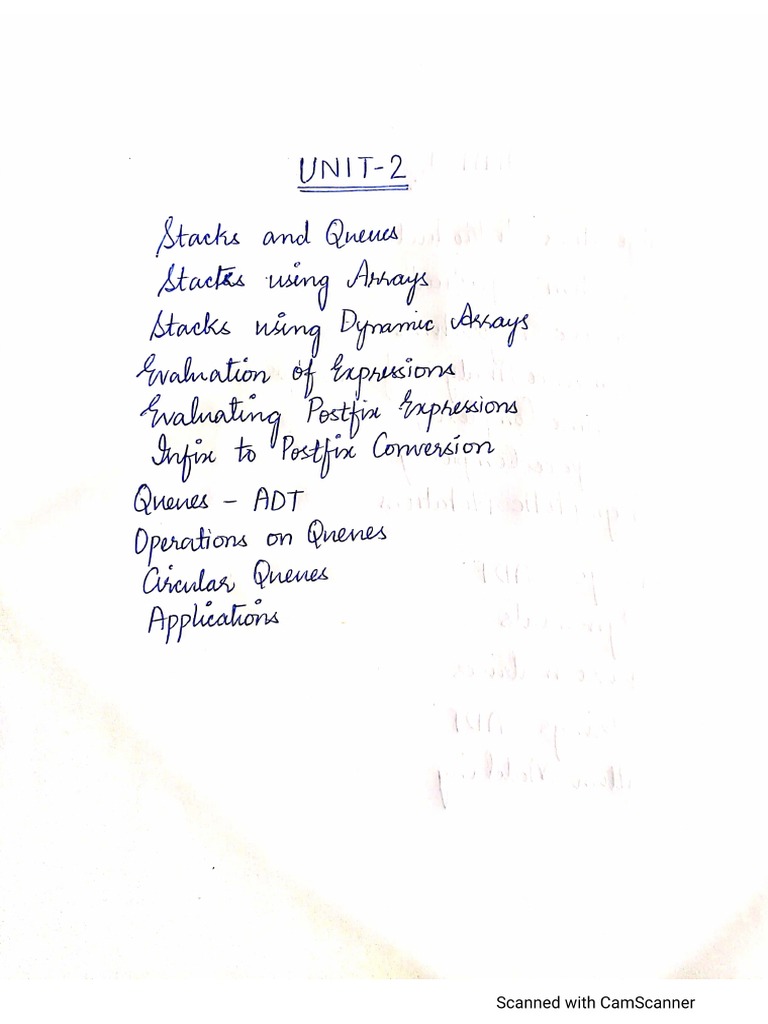 UNIT-2
Stacks and Queues
Stacks using Arrays
Stacks using Dynamic Arrays
Evaluation of Expressions
Evaluating Postfix Expressions
Infix to Postfix Conversion
Queues - ADT
Operations on Queues
Circular Queues
Applications
Scanned with CamScanner